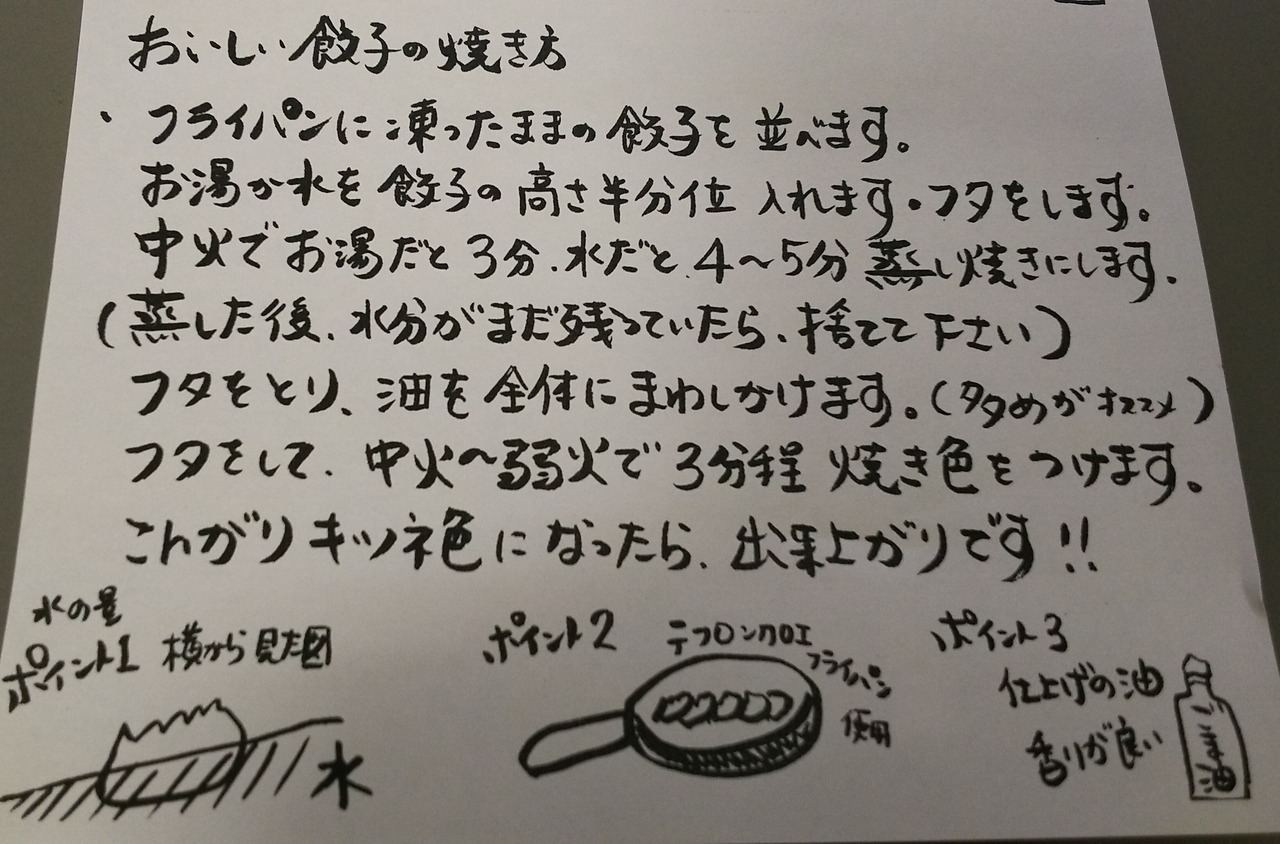 おいしい餃子の焼き方
、フライパンに凍ったままの餃子を並べます。
お湯か水を餃子の高さ半分位入れます。フタをします。
中火でお湯だと3分、水だと、4〜5分蒸し焼きにします。
(蒸した後、水分がまだ残っていたら、捨てて下さい)
フタをとり、油を全体にまわしかけます。(多めがオススメ)
フタをして、中火〜弱火で3分程焼き色をつけます。
こんがりキツネ色になったら、出来上がりです!!
水の量
ポイント1 横から見た図
水
ポイント2 テフロンカロエ
フライパン
使用
ポイント3
仕上げの油
香りが良い
ごま油